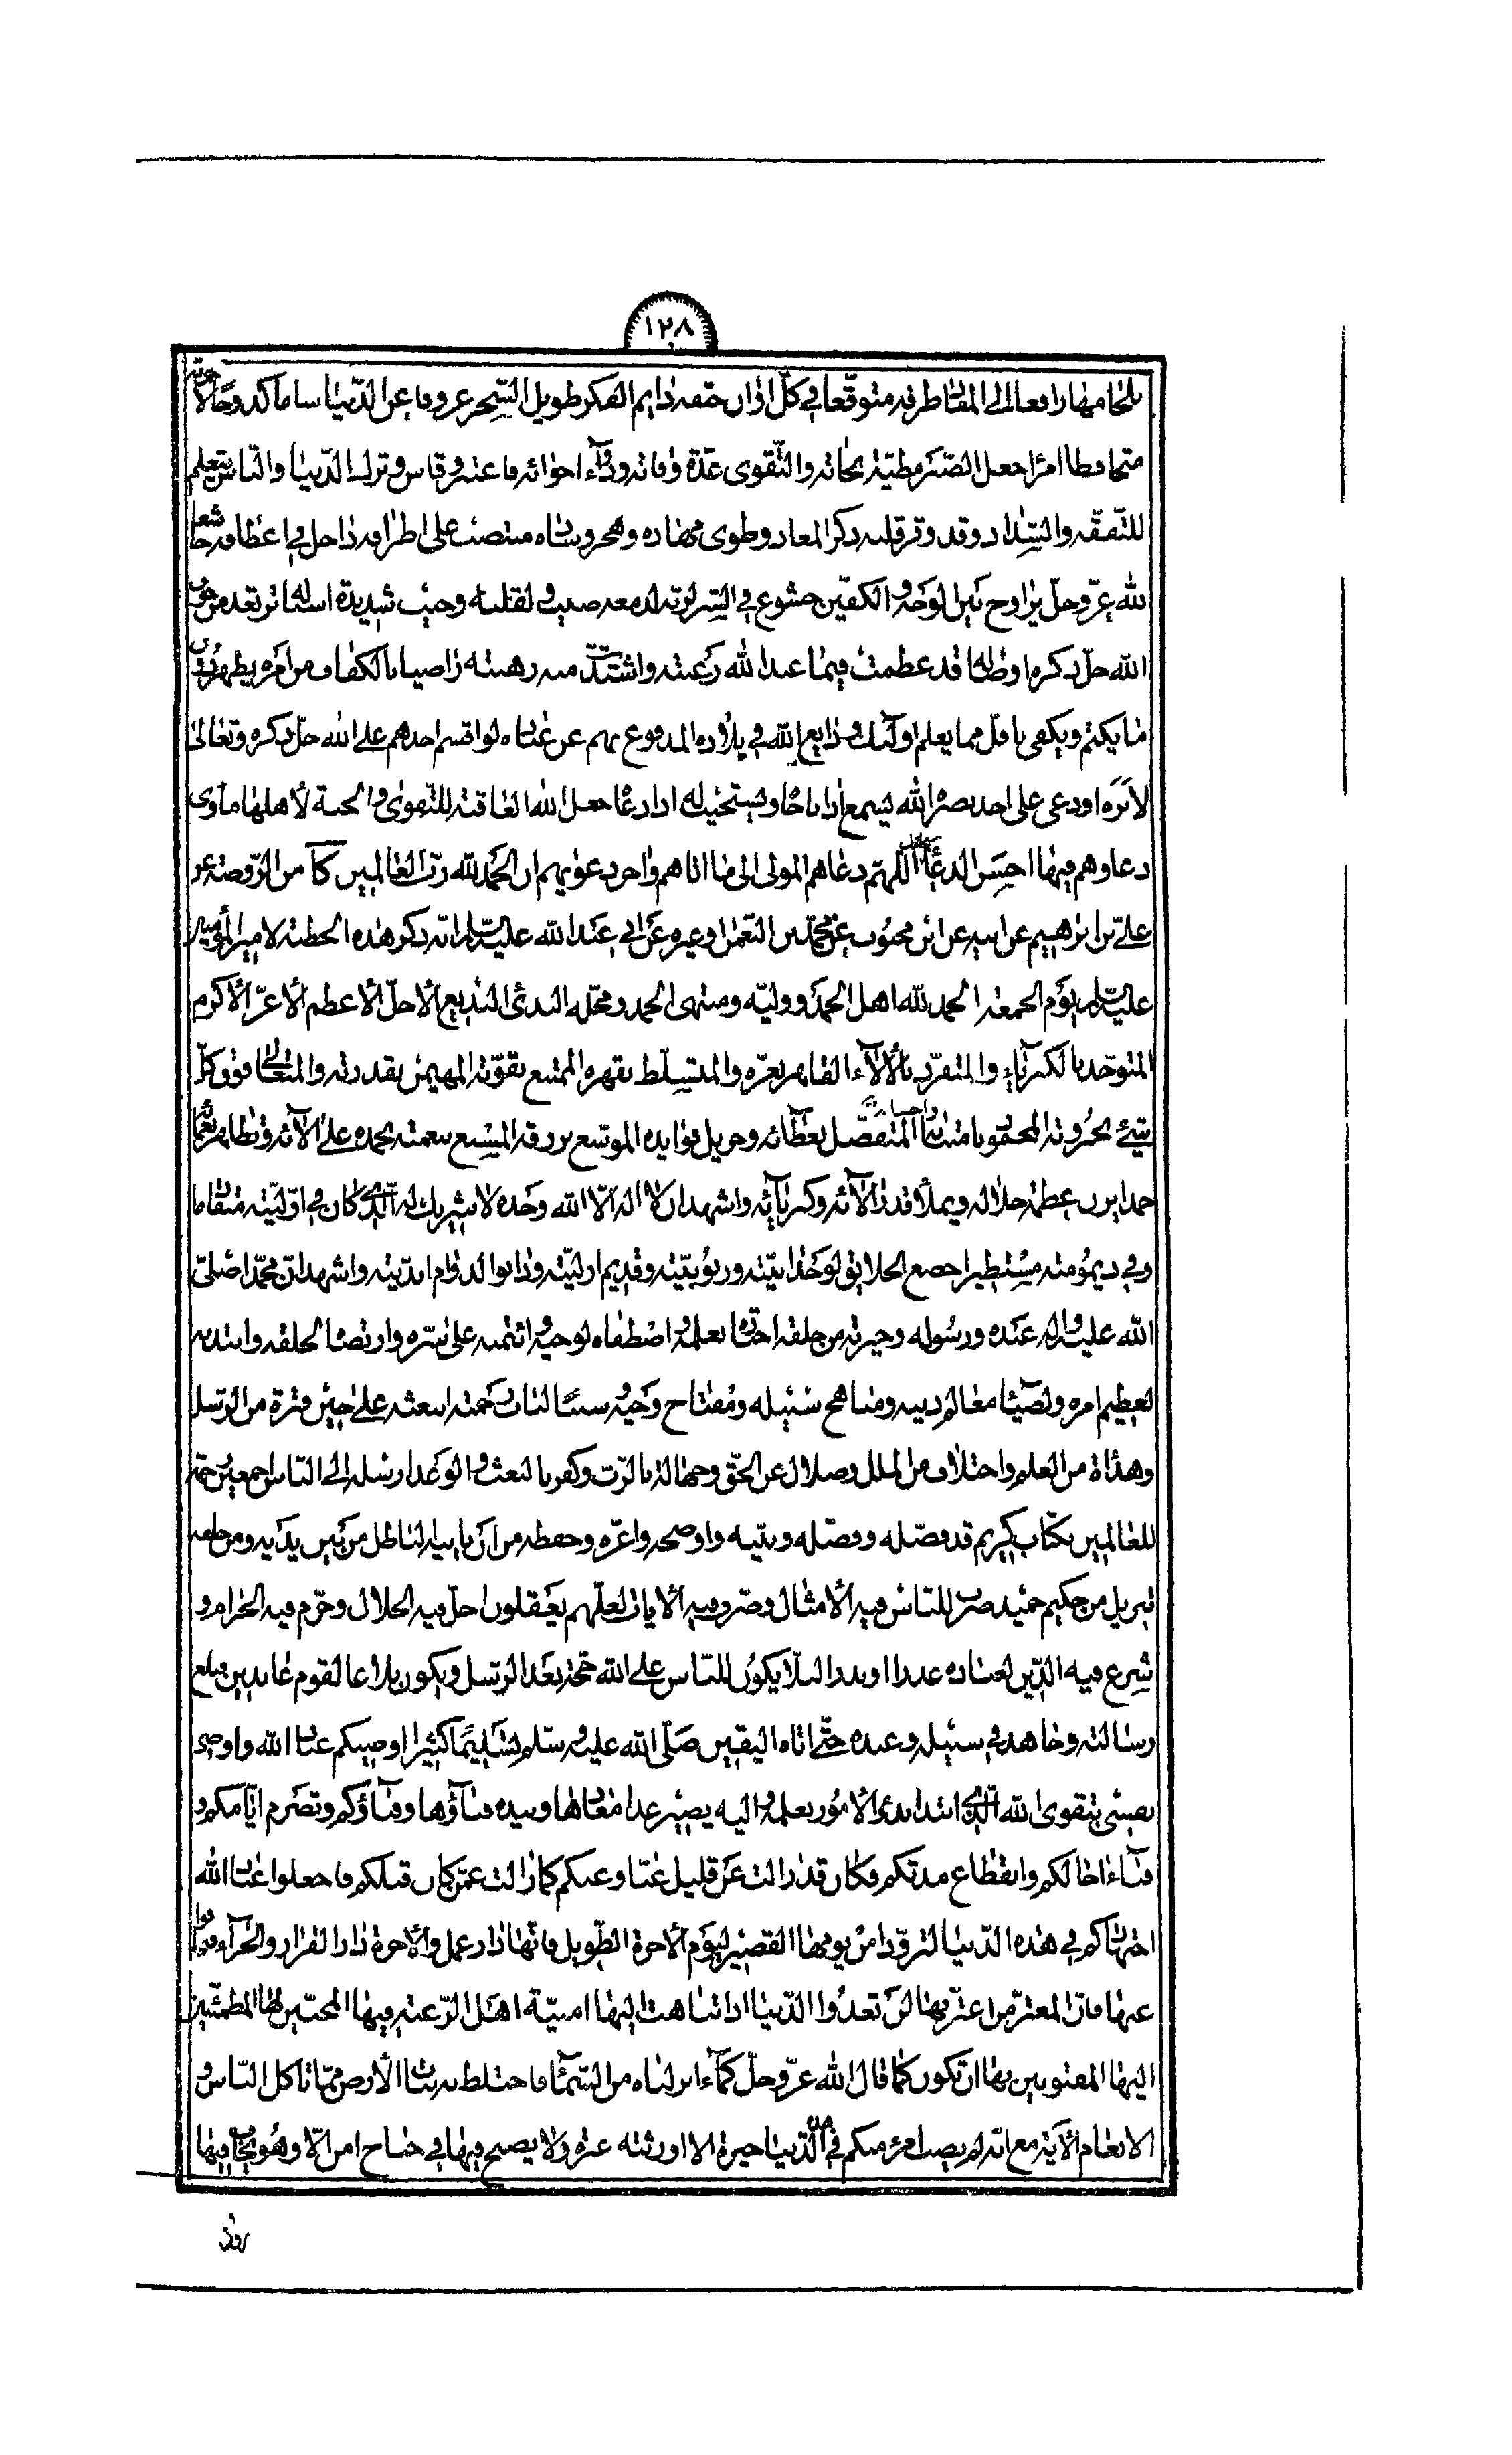 ١٢٨
بلجامها رافعا الى المعاد طرفه متوقعا في كل اوان حتفه دايم الفكر طويل السهر عزوفا عن الدنيا ساما كدوحا لآخرته
متحافظا امرا جعل الصبر مطية نجاته والتقوى عدة وفاته ودواء اجوائه فاعتبر وقاس وترك الدنيا والناس يتعلم
للتفقه والسداد وقد وقر قلبه ذكر المعاد وطوى مهاده وهجر وساده منتصب على اطرافه داخل في اعطافه خاشعا
لله عز وجل يراوح بين الوجه والكفين خشوع في السر لربه لدمعه صبيب ولقلبه وجيب شديدة اسباله ترتعد من خوف
الله جل ذكره اوصاله قد عظمت فيما عند الله رغبته واشتدت منه رهبته راضيا بالكفاف من امره يظهر دون
ما يكتم ويكتفى باقل مما يعلم اولئك ودايع الله في بلاده المدفوع بهم عن عباده لو اقسم احدهم على الله جل ذكره وتعالى
لابره او دعى على احد نصره الله يسمع اذا ناجاه ويستجيب له اذا دعاه جعل الله العاقبة للتقوى والجنة لاهلها ماوى
دعاوهم فيها احسن الدعاء سبحانك اللهم دعاهم المولى الى ما اتاهم واخر دعويهم ان الحمد لله رب العالمين كا من الروضة عن
علي بن ابرهيم عن ابيه عن ابن محبوب عن محمد بن النعمن او غيره عن ابي عبد الله عليه السلام انه ذكر هذه الخطبة لامير المؤمنين
عليه السلام يوم الجمعة الحمد لله اهل الحمد ووليه ومنتهى الحمد ومحله البدئ البديع الاجل الاعظم الاعز الاكرم
المتوحد بالكبرياء والمتفرد بالآلاء القاهر بعزه والمتسلط بقهره الممتنع بقوته المهيمن بقدرته والمتعالى فوق كل
شئ بجبروته المحمود بامتنانه وباحسانه المتفضل بعطائه وجزيل فوايده الموسع برزقه المسبغ بنعمته نحمده على آلائه وتظاهر نعمائه
حمدا يزن عظمة جلاله ويملأ قدر آلائه وكبريائه واشهد ان لا اله الا الله وحده لا شريك له الذي كان في اوليته متقادما
وفي ديمومته مسيطرا خضع الخلايق لوحدانيته وربوبيته وقديم ازليته ودانوا لدوام ابديته واشهد ان محمدا صلى
الله عليه واله عبده ورسوله وخيرته من خلقه اختاره بعلمه واصطفاه لوحيه وائتمنه على سره وارتضاه لخلقه وانتدبه
لعظيم امره ولضياء معالم دينه ومناهج سبيله ومفتاح وحيه وسببا لباب رحمته ابتعثه على حين فترة من الرسل
وهدأة من العلم واختلاف من الملل وضلال عن الحق وجهالة بالرب وكفر بالبعث والوعد ارسله الى الناس اجمعين رحمة
للعالمين بكتاب كريم قد فضله وفصله وبينه واوضحه واعزه وحفظه من ان ياتيه الباطل من بين يديه ومن خلفه
تنزيل من حكيم حميد ضرب للناس فيه الامثال وصرف فيه الايات لعلهم يعقلون احل فيه الحلال وحرم فيه الحرام و
شرع فيه الدين لعباده عذرا او نذرا لئلا يكون للناس على الله حجة بعد الرسل ويكون بلاغا لقوم عابدين فبلغ
رسالته وجاهد في سبيله وعبده حتى اتاه اليقين صلى الله عليه وسلم تسليما كثيرا اوصيكم عباد الله واوصى
نفسي بتقوى الله الذي ابتدا بدئ الامور بعلمه واليه يصير غدا معادها وبيده فناؤها وفناؤكم وتصرم ايامكم و
فناء اجالكم وانقطاع مدتكم فكان قد زالت عن قليل عنا وعنكم كما زالت عمن كان قبلكم فاجعلوا عباد الله
اجتهادكم في هذه الدنيا التزود من يومها القصير ليوم الاخرة الطويل فانها دار عمل والاخرة دار القرار والجزاء فتجافوا
عنها فان المغتر من اغتر بها لن تعدوا الدنيا اذا تناهت اليها امنية اهل الرغبة فيها المحبين لها المطمئنين
اليها المفتونين بها ان تكون كما قال الله عز وجل كماء انزلناه من السماء فاختلط به نبات الارض مما تاكل الناس و
الانعام الاية مع انه لم يصب امرؤ منكم في هذه الدنيا حبرة الا اورثته عبرة ولا يصبح فيها في جناح امن الا وهو يخاف فيها